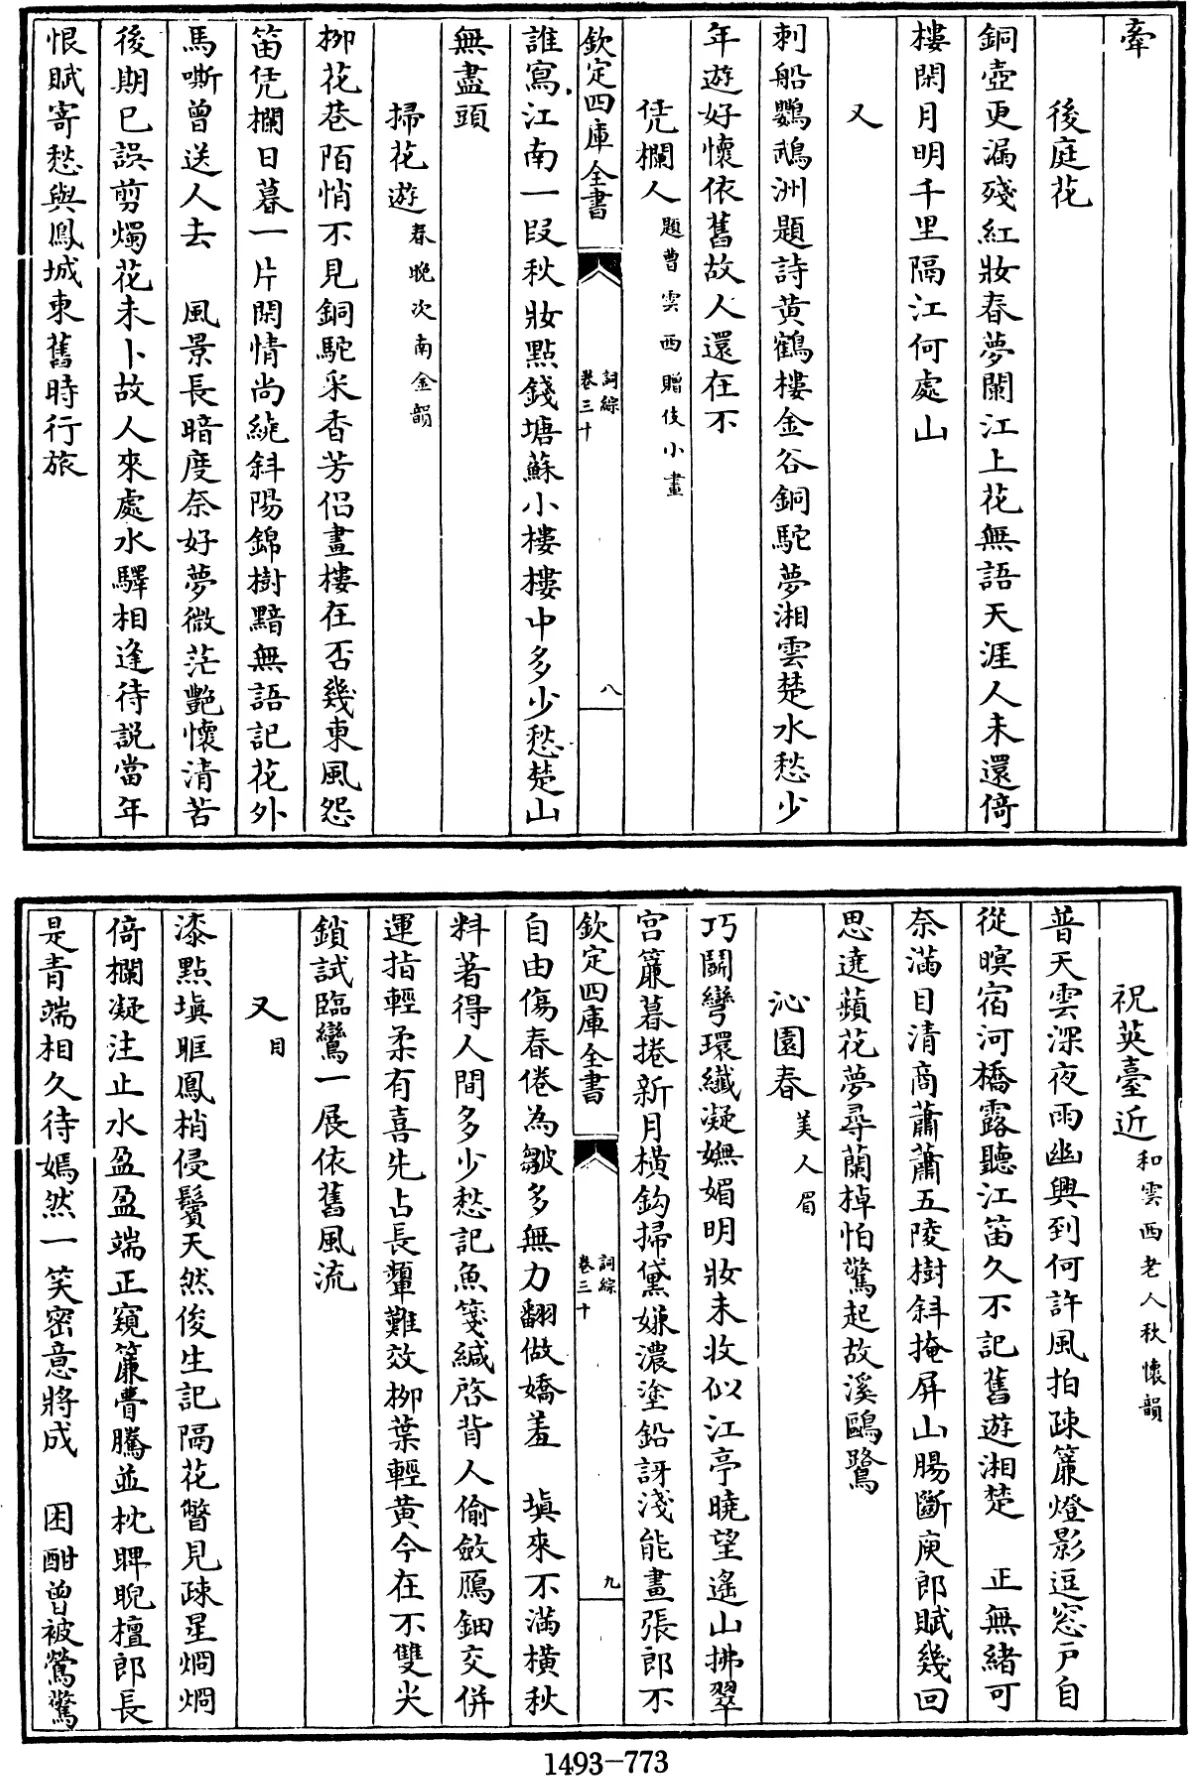 牽
後庭花
銅壺更漏殘紅妝春夢闌江上花無語天涯人未還倚
樓閑月明千里隔江何處山
又
刺船鸚鵡洲題詩黄鶴樓金谷銅駝夢湘雲楚水愁少
年遊好懷依舊故人還在不
凭欄人題曹雲西贈伎小畫
欽定四庫全書
詞綜
卷三十
八
誰寫江南一段秋妝點錢塘蘇小樓樓中多少愁楚山
無盡頭
掃花遊春晚次南金韻
柳花巷陌悄不見銅駝采香芳侣畫樓在否幾東風怨
笛凭欄日暮一片閑情尚繞斜陽錦樹黯無語記花外
馬嘶曾送人去　風景長暗度奈好夢微茫艷懷清苦
後期已誤剪燭花未卜故人來處水驛相逢待説當年
恨賦寄愁與鳳城東舊時行旅
祝英臺近和雲西老人秋懷韻
普天雲深夜雨幽興到何許風拍疎簾燈影逗窓戸自
從暝宿河橋露聽江笛久不記舊遊湘楚　正無緒可
奈滿目清商蕭蕭五陵樹斜掩屏山腸斷庾郎賦幾回
思遶蘋花夢尋蘭棹怕驚起故溪鷗鷺
沁園春美人眉
巧鬭彎環纖凝嫵媚明妝未收似江亭曉望遙山拂翠
宫簾暮捲新月横鈎掃黛嫌濃塗鉛訝淺能畫張郎不
欽定四庫全書
詞綜
卷三十
九
自由傷春倦為皺多無力翻做嬌羞　填來不滿横秋
料著得人間多少愁記魚箋緘啓背人偷斂鴈鈿交併
運指輕柔有喜先占長顰難效柳葉輕黄今在不雙尖
鎖試臨鸞一展依舊風流
又目
漆點填眶鳳梢侵鬢天然俊生記隔花瞥見疎星炯炯
倚欄凝注止水盈盈端正窺簾瞢騰並枕睥睨檀郎長
是青端相久待嫣然一笑密意將成　困酣曾被鶯驚
1493-773